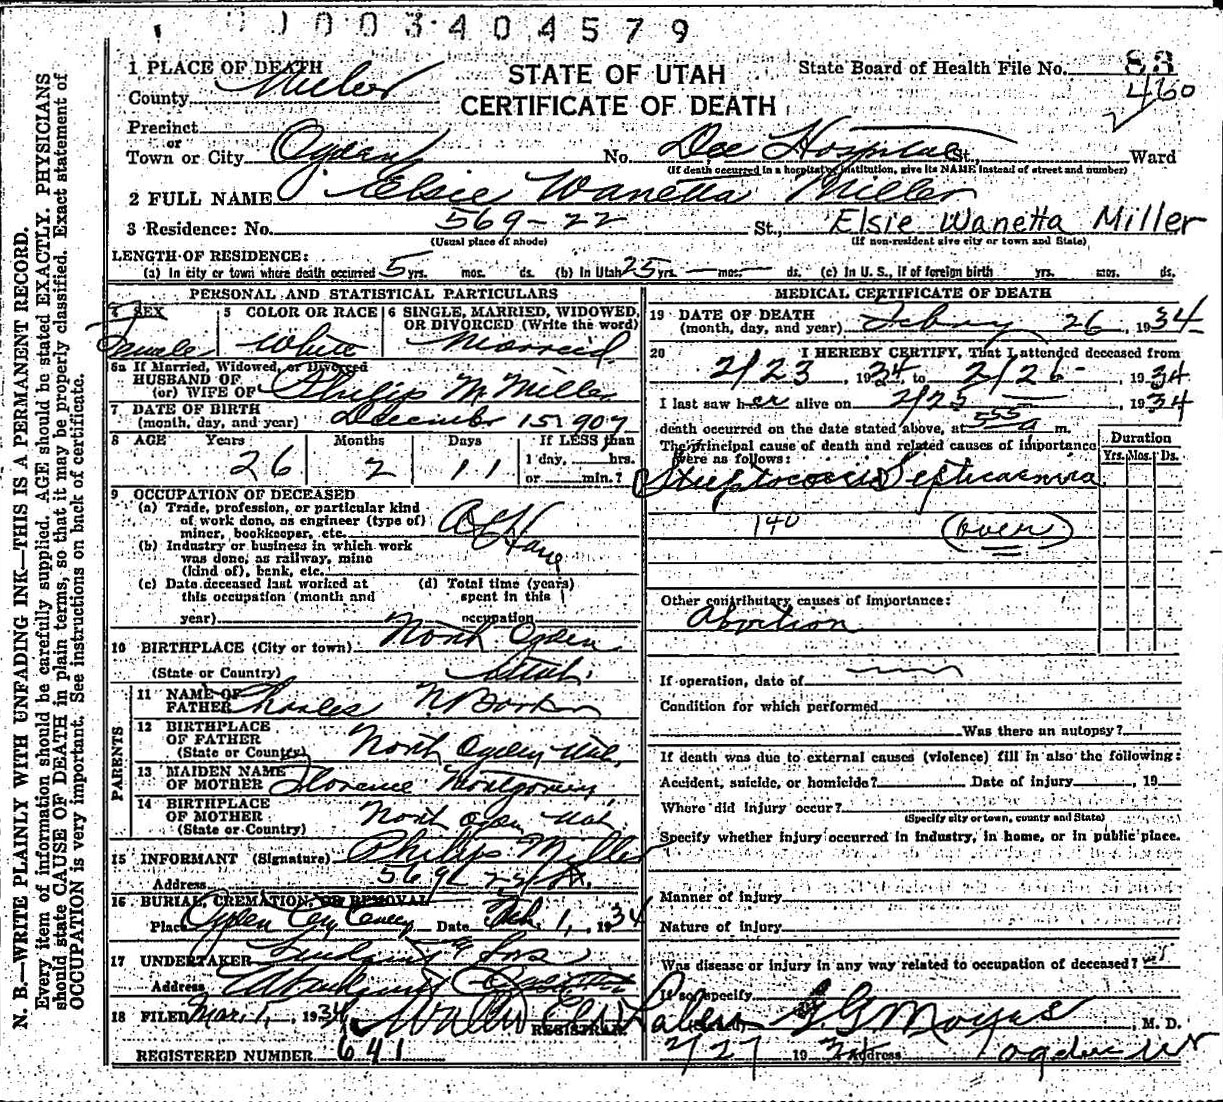 1003404579
1 PLACE OF DEATH
STATE OF UTAH
CERTIFICATE OF DEATH
State Board of Health File No. 83
460
County
Precinct
or
Town or City Ogden No. Dee Hospital St., Ward
(If death occurred in a hospital or institution, give its NAME instead of street and number)
2 FULL NAME Elsie Wanetta Miller
3 Residence: No. 569-22 St., Elsie Wanetta Miller
(Usual place of abode) (If non-resident give city or town and State)
LENGTH OF RESIDENCE:
(a) In city or town where death occurred 5 yrs. mos. ds. (b) In Utah 25 yrs. — mos. — ds. (c) In U. S., if of foreign birth yrs. mos. ds.
PERSONAL AND STATISTICAL PARTICULARS
4 SEX Female
5 COLOR OR RACE White
6 SINGLE, MARRIED, WIDOWED,
OR DIVORCED (Write the word)
Married
6a If Married, Widowed, or Divorced
HUSBAND OF
(or) WIFE OF Philip M. Miller
7 DATE OF BIRTH
(month, day, and year) December 15 1907
8 AGE Years Months Days If LESS than
26 2 11 1 day, hrs.
or min.?
9 OCCUPATION OF DECEASED
(a) Trade, profession, or particular kind
of work done, as engineer (type of)
miner, bookkeeper, etc.
(b) Industry or business in which work
was done, as railway, mine
(kind of), bank, etc.
(c) Date deceased last worked at
this occupation (month and
year)
(d) Total time (years)
spent in this
occupation
10 BIRTHPLACE (City or town) North Ogden
(State or Country) Utah
PARENTS
11 NAME OF
FATHER Charles N
12 BIRTHPLACE
OF FATHER
(State or Country) North Ogden Utah
13 MAIDEN NAME
OF MOTHER Florence Montgomery
14 BIRTHPLACE
OF MOTHER
(State or Country) North Ogden Utah
15 INFORMANT (Signature) Philip Miller
Address 569
16 BURIAL, CREMATION, OR REMOVAL
Place Ogden City Date Mch. 1, 1934
17 UNDERTAKER & Sons
Address
18 FILED Mar. 1, 1934
REGISTRAR
REGISTERED NUMBER 641
MEDICAL CERTIFICATE OF DEATH
19 DATE OF DEATH
(month, day, and year) 26, 1934
20 I HEREBY CERTIFY, That I attended deceased from
2/23, 1934, to 2/26, 1934
I last saw her alive on 2/25, 1934
death occurred on the date stated above, at 555 a m.
The principal cause of death and related causes of importance
were as follows:
Duration
Yrs. Mos. Ds.
Septicaemia
140 (over)
Other contributary causes of importance:
Abortion
If operation, date of
Condition for which performed
Was there an autopsy?
If death was due to external causes (violence) fill in also the following:
Accident, suicide, or homicide? Date of injury, 19
Where did injury occur?
(Specify city or town, county and State)
Specify whether injury occurred in industry, in home, or in public place.
Manner of injury
Nature of injury
Was disease or injury in any way related to occupation of deceased?
If so, specify
M. D.
2/27 19 Address Ogden
N. B.—WRITE PLAINLY WITH UNFADING INK—THIS IS A PERMANENT RECORD.
Every item of information should be carefully supplied. AGE should be stated EXACTLY. PHYSICIANS
should state CAUSE OF DEATH in plain terms, so that it may be properly classified. Exact statement of
OCCUPATION is very important. See instructions on back of certificate.